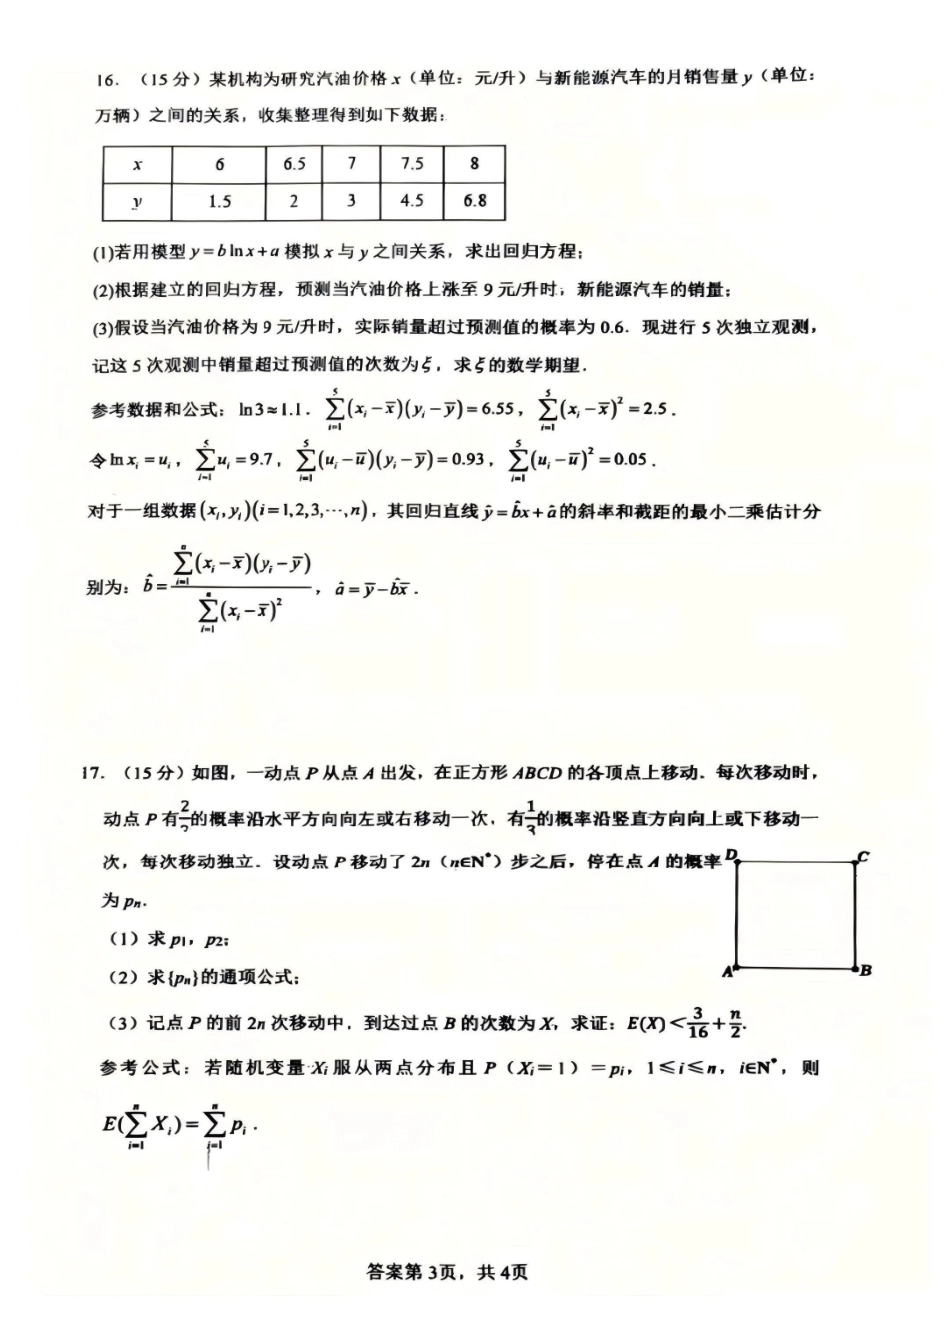 16. （15 分）某机构为研究汽油价格 x（单位：元/升）与新能源汽车的月销售量 y（单位：
万辆）之间的关系，收集整理得到如下数据：
x 6 6.5 7 7.5 8
y 1.5 2 3 4.5 6.8
(1)若用模型 y = b ln x + a 模拟 x 与 y 之间关系，求出回归方程；
(2)根据建立的回归方程，预测当汽油价格上涨至 9 元/升时，新能源汽车的销量；
(3)假设当汽油价格为 9 元/升时，实际销量超过预测值的概率为 0.6．现进行 5 次独立观测，
记这 5 次观测中销量超过预测值的次数为 ξ，求 ξ 的数学期望．
参考数据和公式：ln3≈1.1．∑_{i=1}^{5}(x_i−x̅)(y_i−y̅)=6.55，∑_{i=1}^{5}(x_i−x̅)²=2.5．
令 ln x_i = u_i，∑_{i=1}^{5}u_i=9.7，∑_{i=1}^{5}(u_i−u̅)(y_i−y̅)=0.93，∑_{i=1}^{5}(u_i−u̅)²=0.05．
对于一组数据(x_i,y_i)(i=1,2,3,⋯,n)，其回归直线 ŷ=b̂x+â 的斜率和截距的最小二乘估计分
别为：b̂=∑_{i=1}^{n}(x_i−x̅)(y_i−y̅)/∑_{i=1}^{n}(x_i−x̅)²，â=y̅−b̂x̅．
17. （15 分）如图，一动点 P 从点 A 出发，在正方形 ABCD 的各顶点上移动．每次移动时，
动点 P 有2/3的概率沿水平方向向左或右移动一次，有1/3的概率沿竖直方向向上或下移动一
次，每次移动独立．设动点 P 移动了 2n（n∈N*）步之后，停在点 A 的概率
为 pₙ．
D C
（1）求 p₁，p₂；
（2）求{pₙ}的通项公式；
A B
（3）记点 P 的前 2n 次移动中，到达过点 B 的次数为 X，求证：E(X)<3/16+n/2．
参考公式：若随机变量 X_i 服从两点分布且 P（X_i＝1）＝p_i，1≤i≤n，i∈N*，则
E(∑_{i=1}^{n}X_i)=∑_{i=1}^{n}p_i．
答案第 3页，共 4页